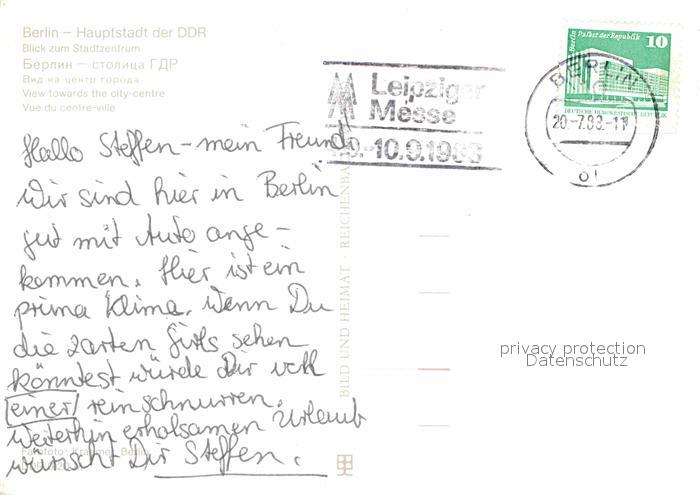 Berlin – Hauptstadt der DDR
Blick zum Stadtzentrum
Берлин – столица ГДР
Вид на центр города
View towards the city-centre
Vue du centre-ville
Leipziger
Messe
10.9.1983
Berlin Palast der Republik
10
DEUTSCHE DEMOKRATISCHE REPUBLIK
BERLIN
20.-7.83.-11
Hallo Steffen – mein Freund!
Wir sind hier in Berlin
gut mit Auto ange-
kommen. Hier ist ein
prima Klima. Wenn Du
die zarten Girls sehen
könntest würde Dir
einer reinschnurren.
Weiterhin erholsamen Urlaub
wünscht Dir Steffen.
BILD UND HEIMAT · REICHENBA
privacy protection
Datenschutz